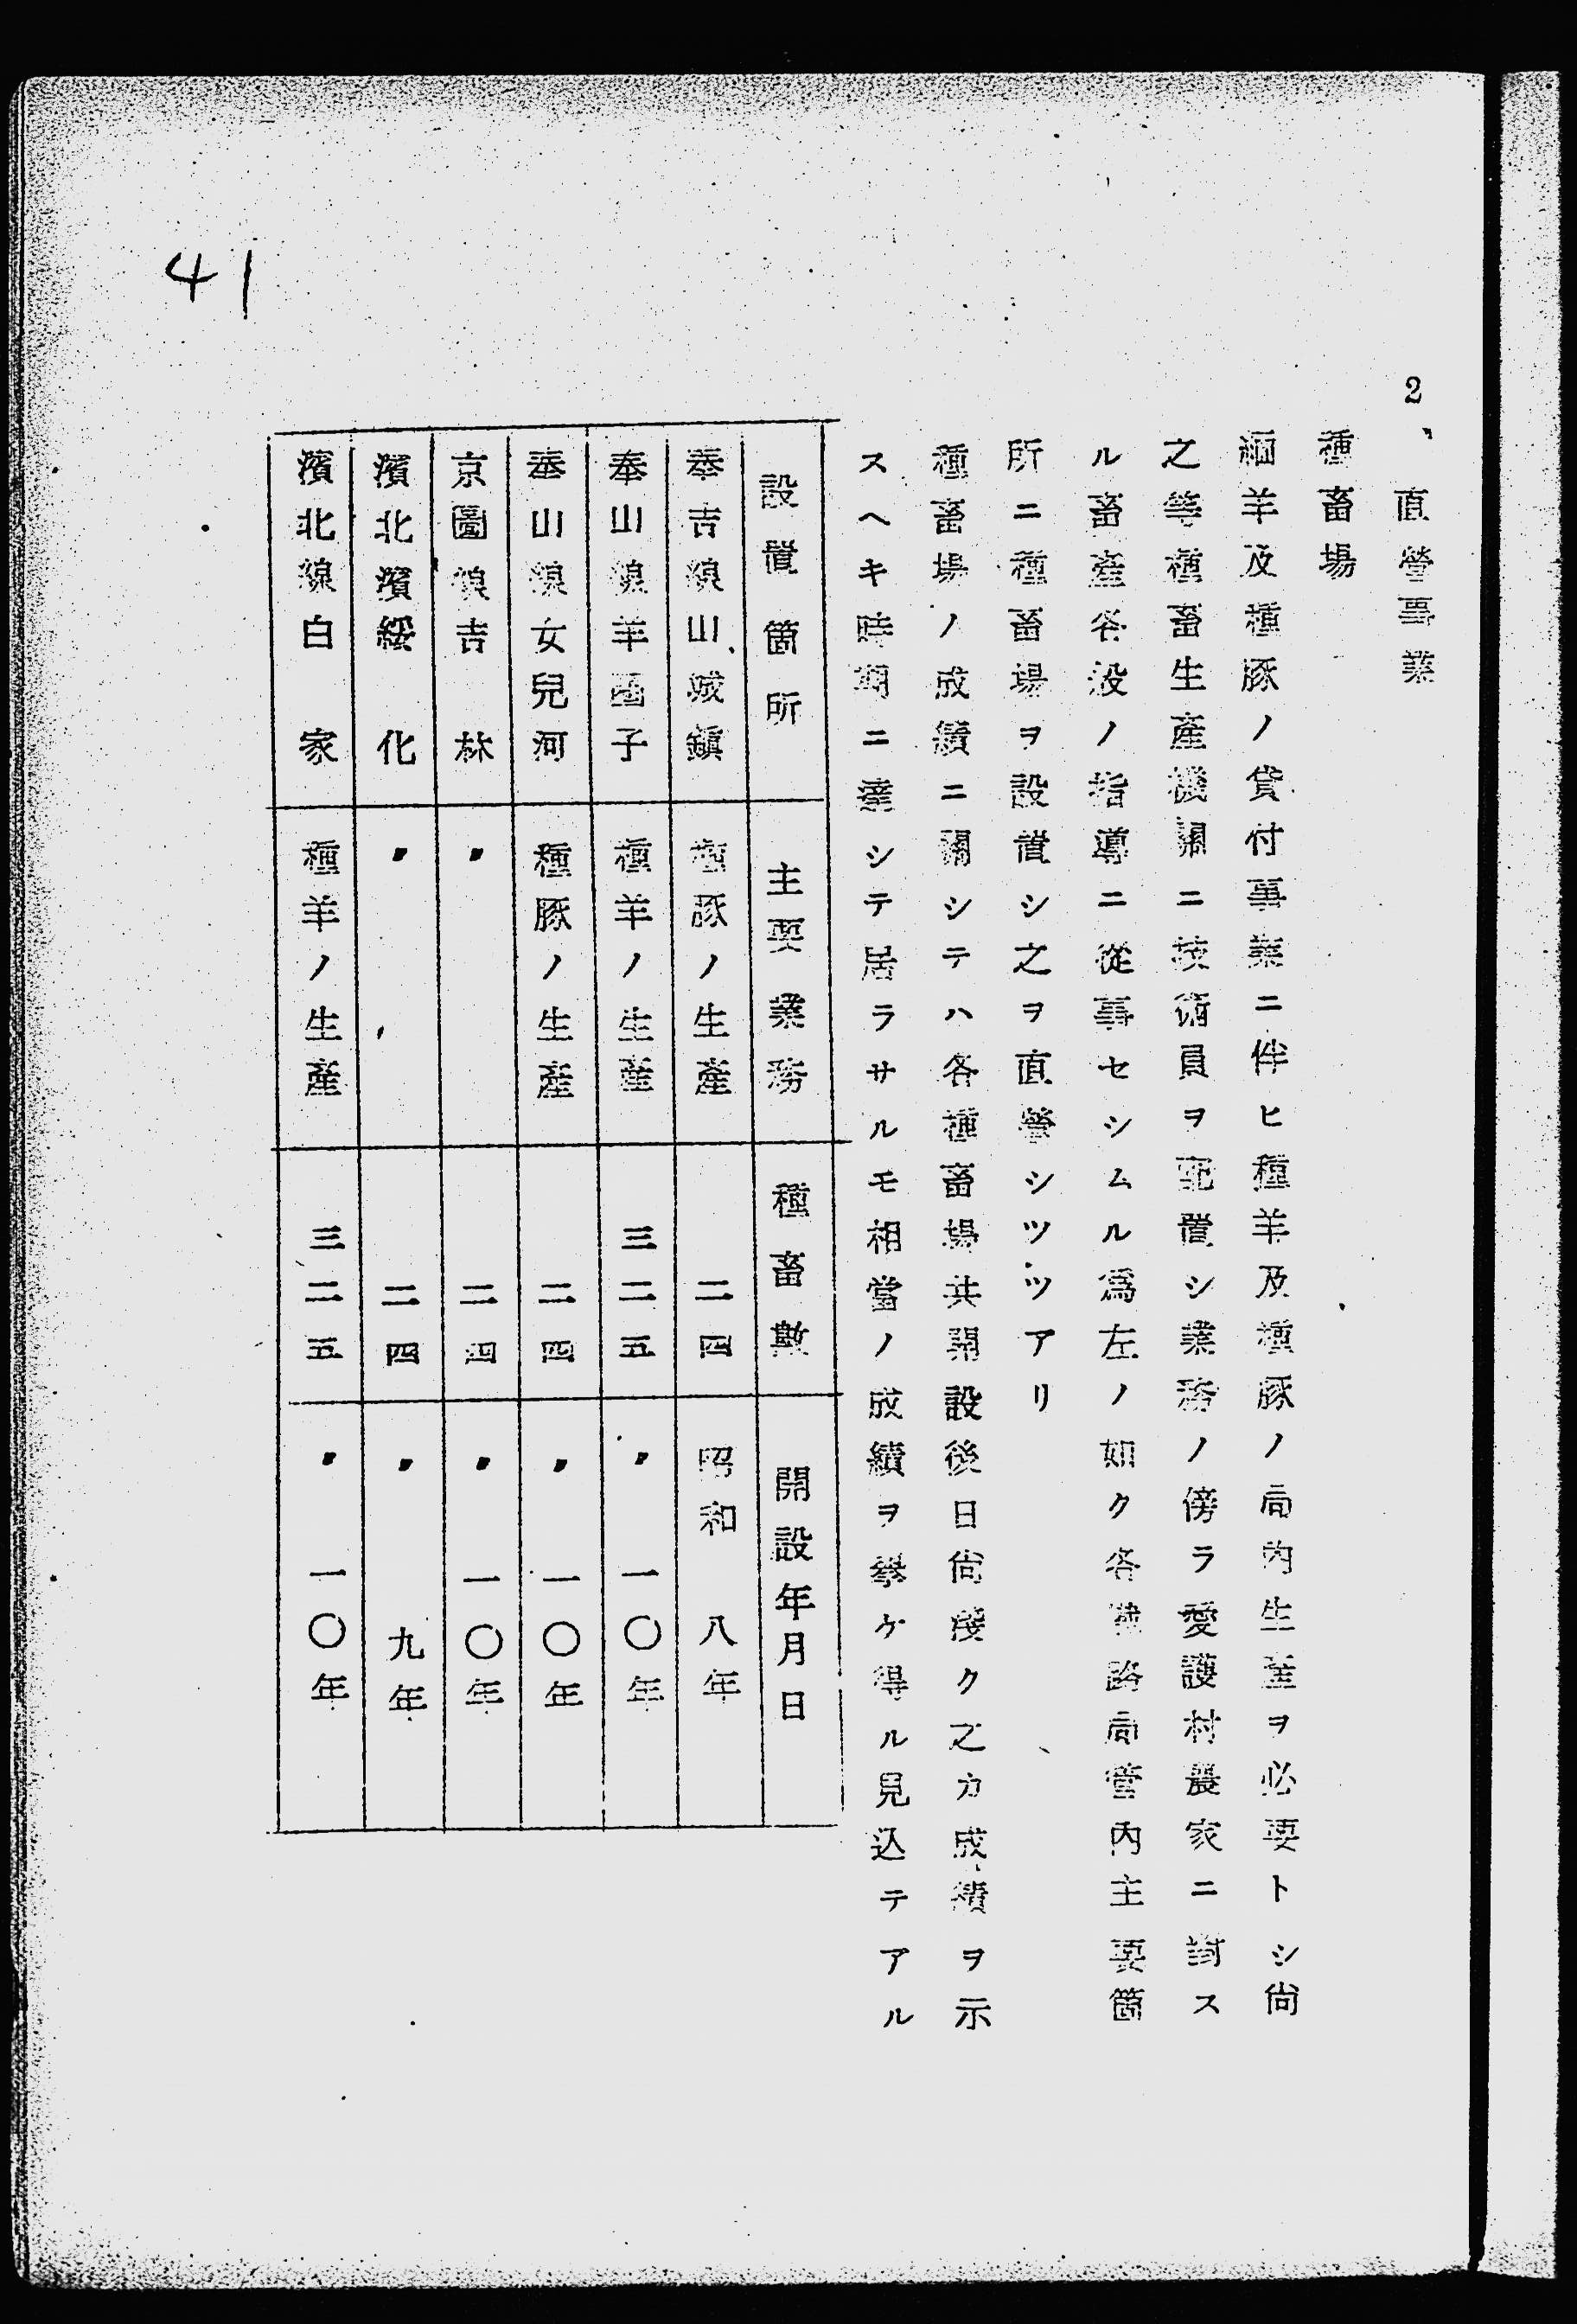 41
2、直營事業
種畜場
緬羊及種豚ノ貸付事業ニ伴ヒ種羊及種豚ノ局內生產ヲ必要トシ尙
之等種畜生產機關ニ技術員ヲ配置シ業務ノ傍ラ愛護村農家ニ對ス
ル畜產各般ノ指導ニ從事セシムル爲左ノ如ク各鐵路局管內主要箇
所ニ種畜場ヲ設置シ之ヲ直營シツツアリ
種畜場ノ成績ニ關シテハ各種畜場共開設後日尙淺ク之カ成績ヲ示
スヘキ時期ニ達シテ居ラサルモ相當ノ成績ヲ擧ケ得ル見込テアル
設置箇所 主要業務 種畜數 開設年月日
奉吉線山城鎭 種豚ノ生產 二四 昭和 八年
奉山線羊圈子 種羊ノ生產 三二五 〃 一〇年
奉山線女兒河 種豚ノ生產 二四 〃 一〇年
京圖線吉林 〃 二四 〃 一〇年
濱北濱綏化 〃 二四 〃 九年
濱北線白家 種羊ノ生產 三二五 〃 一〇年